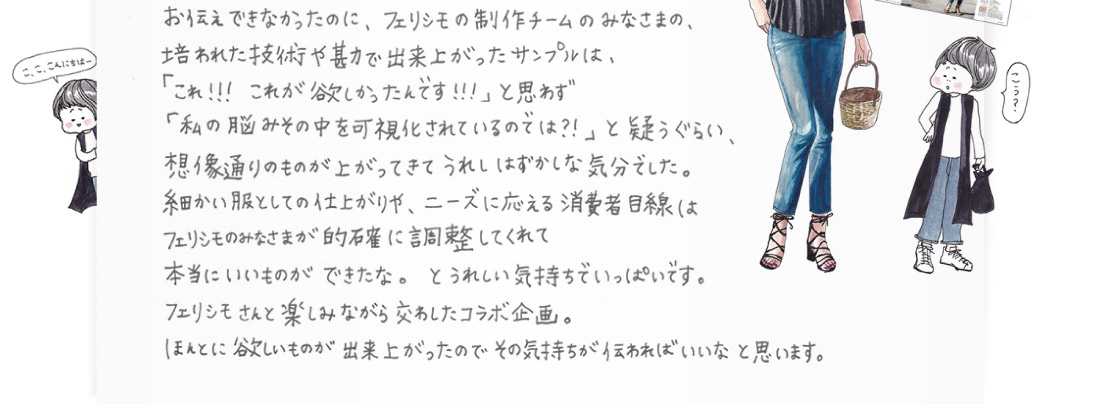 お伝えできなかったのに、フェリシモの制作チームのみなさまの、
培われた技術や甚力で出来上がったサンプルは、
「これ!!! これが欲しかったんです!!!」と思わず
「私の脳みその中を可視化されているのでは?!」と疑うぐらい、
想像通りのものが上がってきてうれしはずかしな気分でした。
細かい服としての仕上がりや、ニーズに応える消費者目線は
フェリシモのみなさまが的確に調整してくれて
本当にいいものができたな。とうれしい気持ちでいっぱいです。
フェリシモさんと楽しみながら交わしたコラボ企画。
ほんとに欲しいものが出来上がったのでその気持ちが伝わればいいなと思います。
こ、こ、こんにちはー
こう?